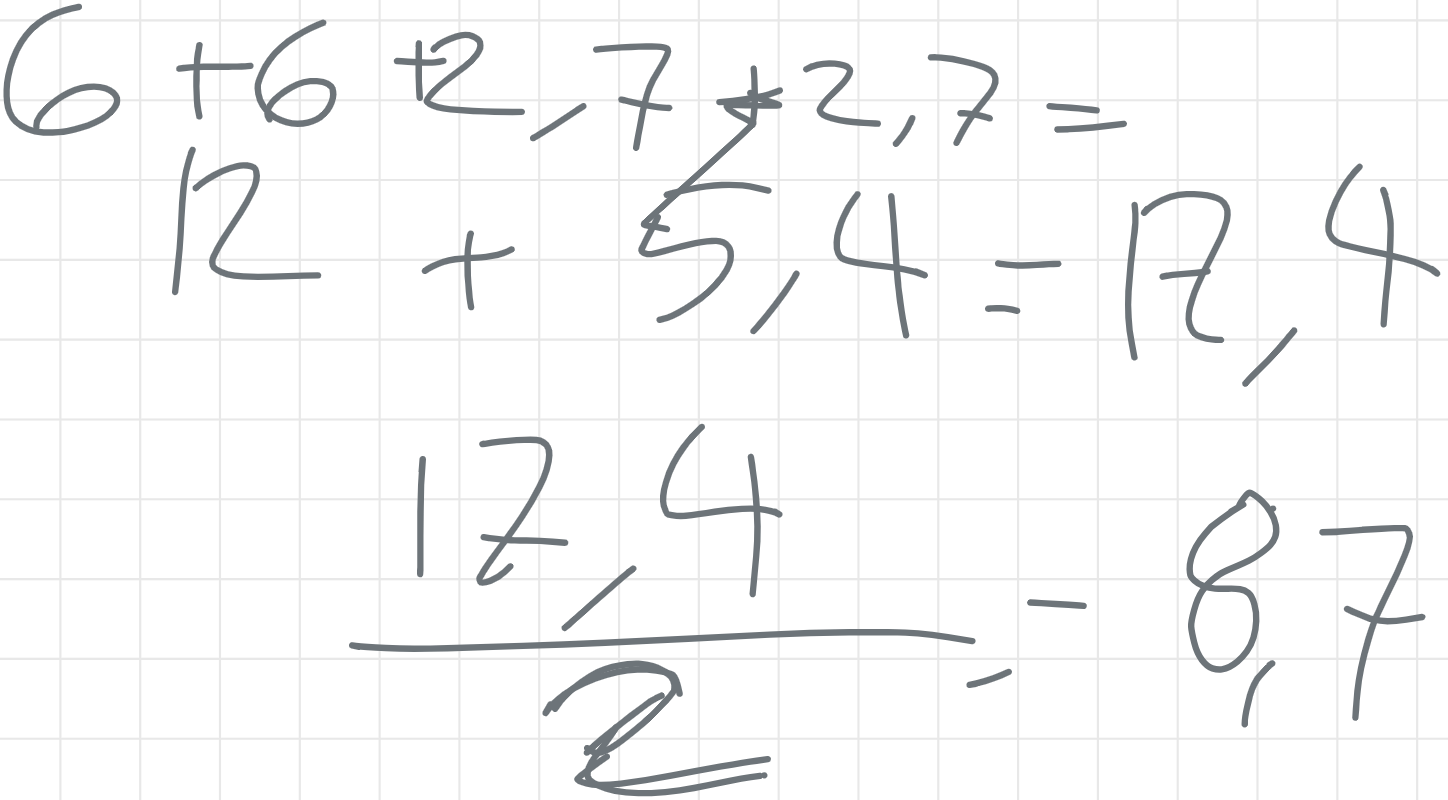 6 + 6 + 2,7 + 2,7 =
12 + 5,4 = 17,4
17,4
2
= 8,7